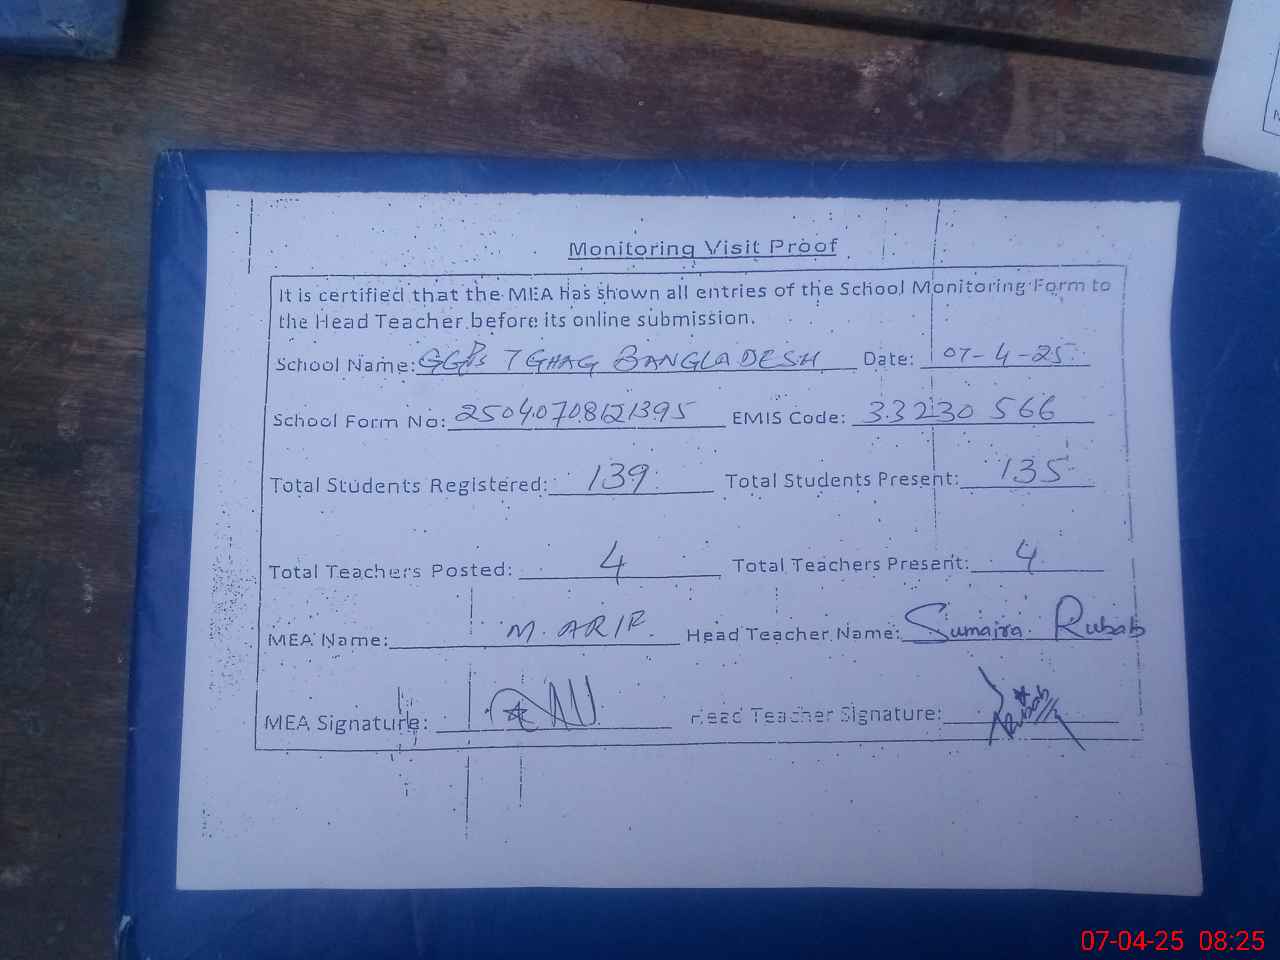 Monitoring Visit Proof
It is certified that the MEA has shown all entries of the School Monitoring Form to
the Head Teacher before its online submission.
School Name: GGPS 7 GHAG BANGLADESH Date: 07-4-25
School Form No: EMIS Code: 33230566
Total Students Registered: 139 Total Students Present: 135
Total Teachers Posted: 4 Total Teachers Present: 4
MEA Name: M. ARIF Head Teacher Name: Sumaira Rubab
MEA Signature: Head Teacher Signature: Rubab
07-04-25 08:25